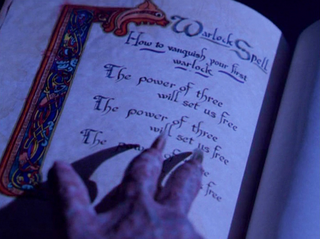 Warlock Spell
How to vanquish your first
warlock
The power of three
will set us free
The power of three
will set us free
The
of three
free